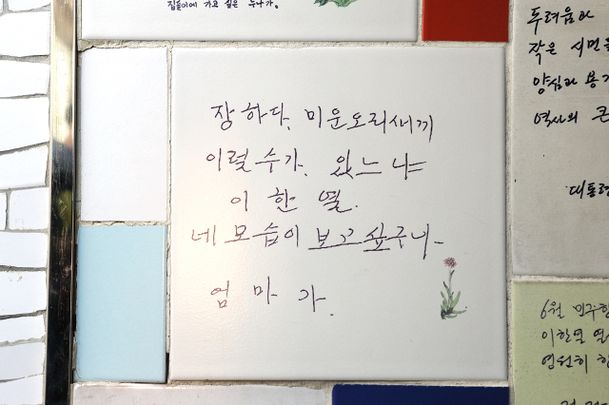 집들이에 가고 싶은 누나가.
장하다. 미운오리새끼
이럴수가. 있느냐
이 한 열.
네 모습이 보고싶구나-
엄 마 가.
두려움과
작은 시민들
양심과 용기
역사의 큰
대통령
6월 민주항
이한열 열
영원히